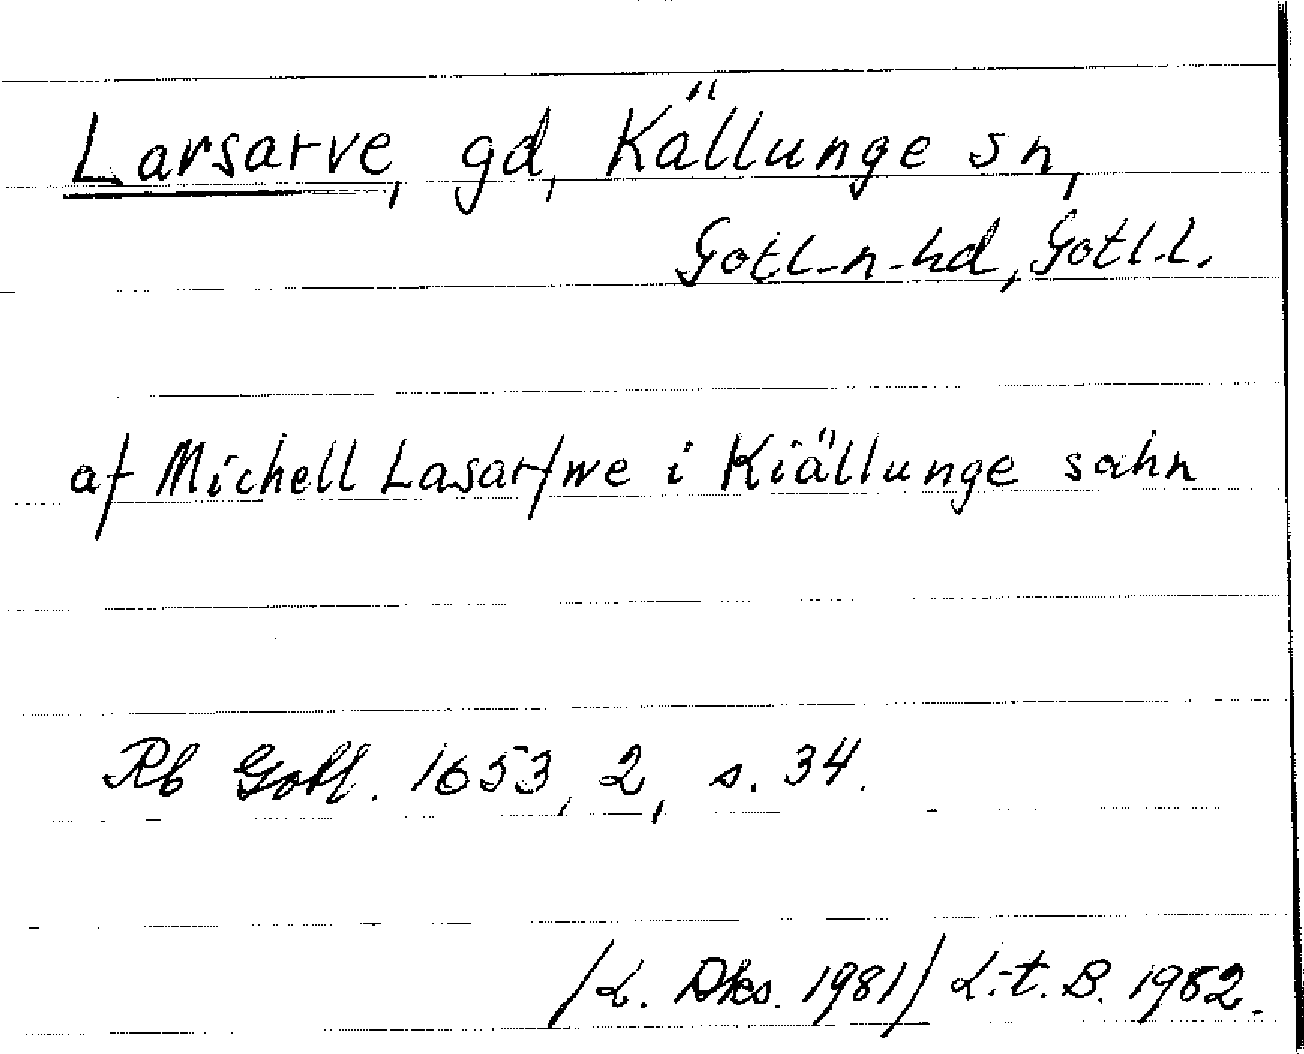 Larsarve, gd, Källunge sn,
Gotl. n. hd, Gotl. l.
af Michell Lasarfwe i Kiällunge sahn
Rb Gotl. 1653, 2, s. 34.
/L. Dks. 1981/ L.-t. B. 1982.